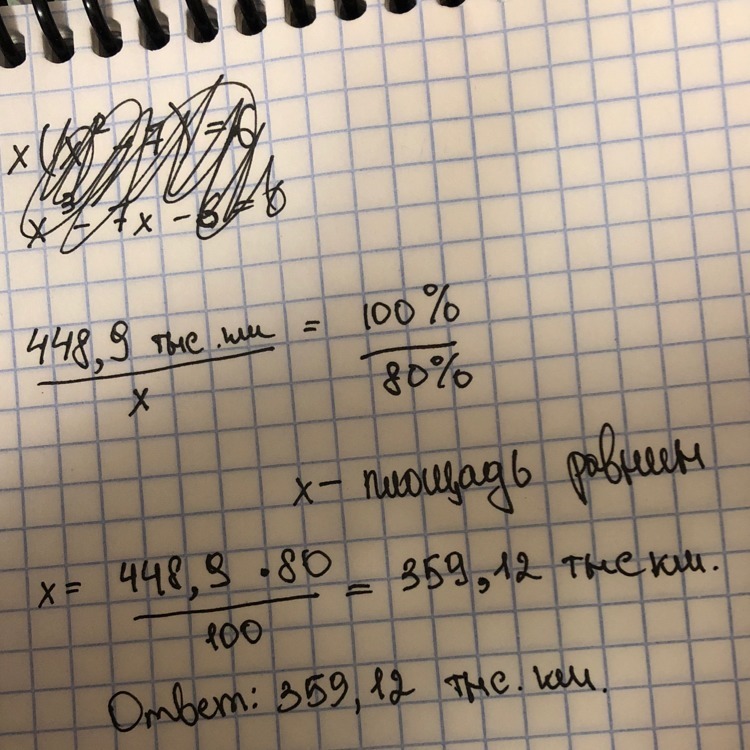 x³ - 7x - 6 = 0
448,9 тыс.км = 100%
x 80%
x – площадь равнин
x = 448,9 · 80 = 359,12 тыс км.
100
Ответ: 359,12 тыс. км.